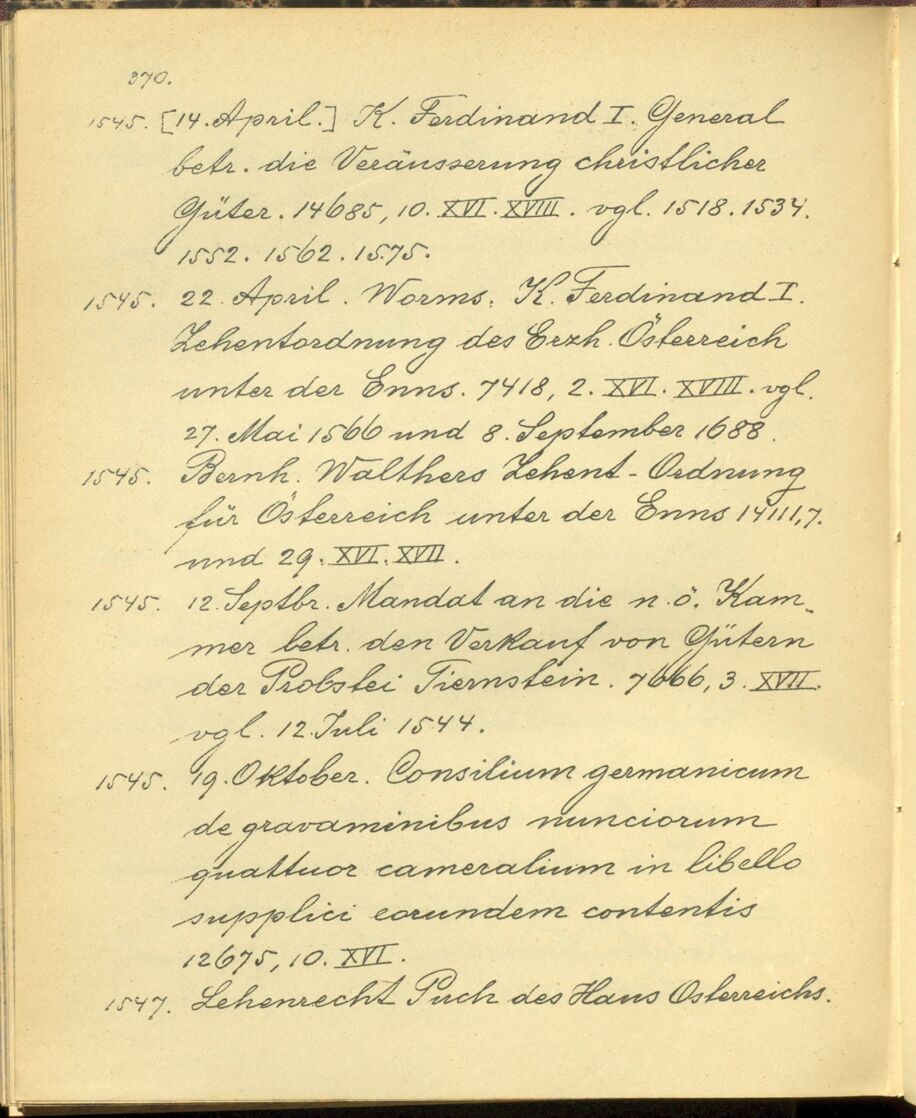 370.
1545. [14. April.] K. Ferdinand I. General
betr. die Veräusserung christlicher
Güter. 14685, 10. XVI. XVIII. vgl. 1518. 1534.
1552. 1562. 1575.
1545. 22. April. Worms. K. Ferdinand I.
Zehentordnung des Erzh. Österreich
unter der Enns. 7418, 2. XVI. XVIII. vgl.
27. Mai 1566 und 8. September 1688.
1545. Bernh. Walthers Zehent-Ordnung
für Österreich unter der Enns 14111,7.
und 29. XVI. XVII.
1545. 12. Septbr. Mandat an die n. ö. Kam-
mer betr. den Verkauf von Gütern
der Probstei Tiernstein. 7666, 3. XVII.
vgl. 12. Juli 1544.
1545. 19. Oktober. Consilium germanicum
de gravaminibus nunciorum
quattuor cameralium in libello
supplici earundem contentis
12675, 10. XVI.
1547. Lehenrecht Puch des Haus Osterreichs.